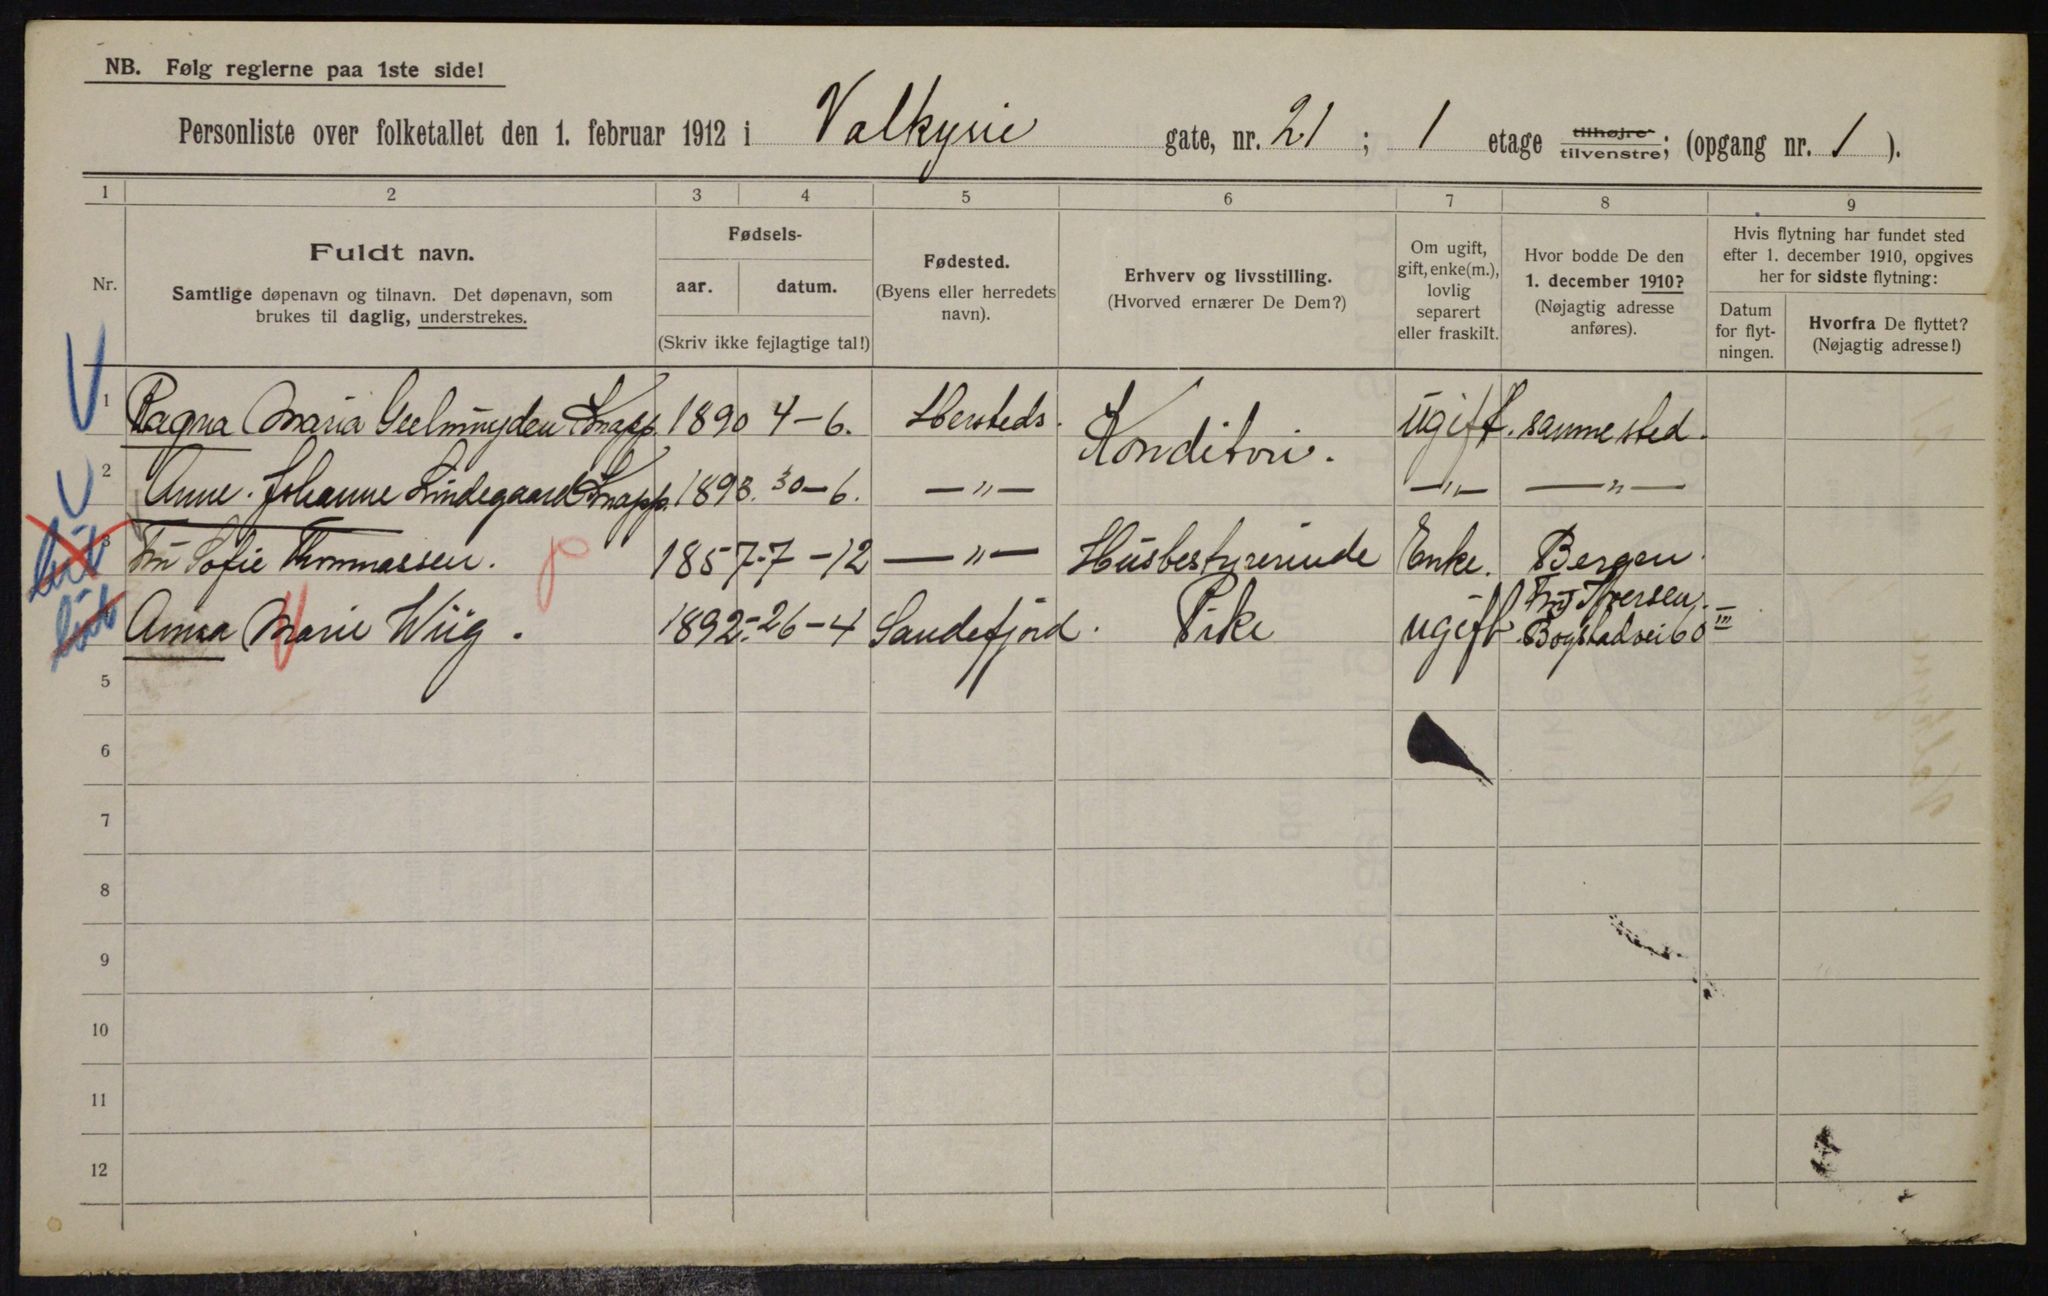 NB. Følg reglerne paa 1ste side!
Personliste over folketallet den 1. februar 1912 i Valkyrie gate, nr. 21 ; 1 etage tilhøjre tilvenstre; (opgang nr. 1 ).
1 2 3 4 5 6 7 8 9
Nr.
Fuldt navn.
Samtlige døpenavn og tilnavn. Det døpenavn, som
brukes til daglig, understrekes.
Fødsels-
aar. datum.
(Skriv ikke fejlagtige tal!)
Fødested.
(Byens eller herredets
navn).
Erhverv og livsstilling.
(Hvorved ernærer De Dem?)
Om ugift,
gift, enke(m.),
lovlig
separert
eller fraskilt.
Hvor bodde De den
1. december 1910?
(Nøjagtig adresse
anføres).
Hvis flytning har fundet sted
efter 1. december 1910, opgives
her for sidste flytning:
Datum
for flyt-
ningen.
Hvorfra De flyttet?
(Nøjagtig adresse!)
1 Ragna Maria Geelmuyden Knapp. 1890 4-6. Konditori. ugift. samme sted.
2 Anne. Johanne Lindegaard Knapp. 1893. 30-6. -"- -"- -"-
3 Fru Sofie Thommassen. 1857.-7-12 -"- Husbestyrerinde Enke. Bergen.
Anna Marie Wiig. 1892.-26-4 Sandefjord. Pike ugift Fru Iversen.
Bogstadvei 60 III
5
6
7
8
9
10
11
12